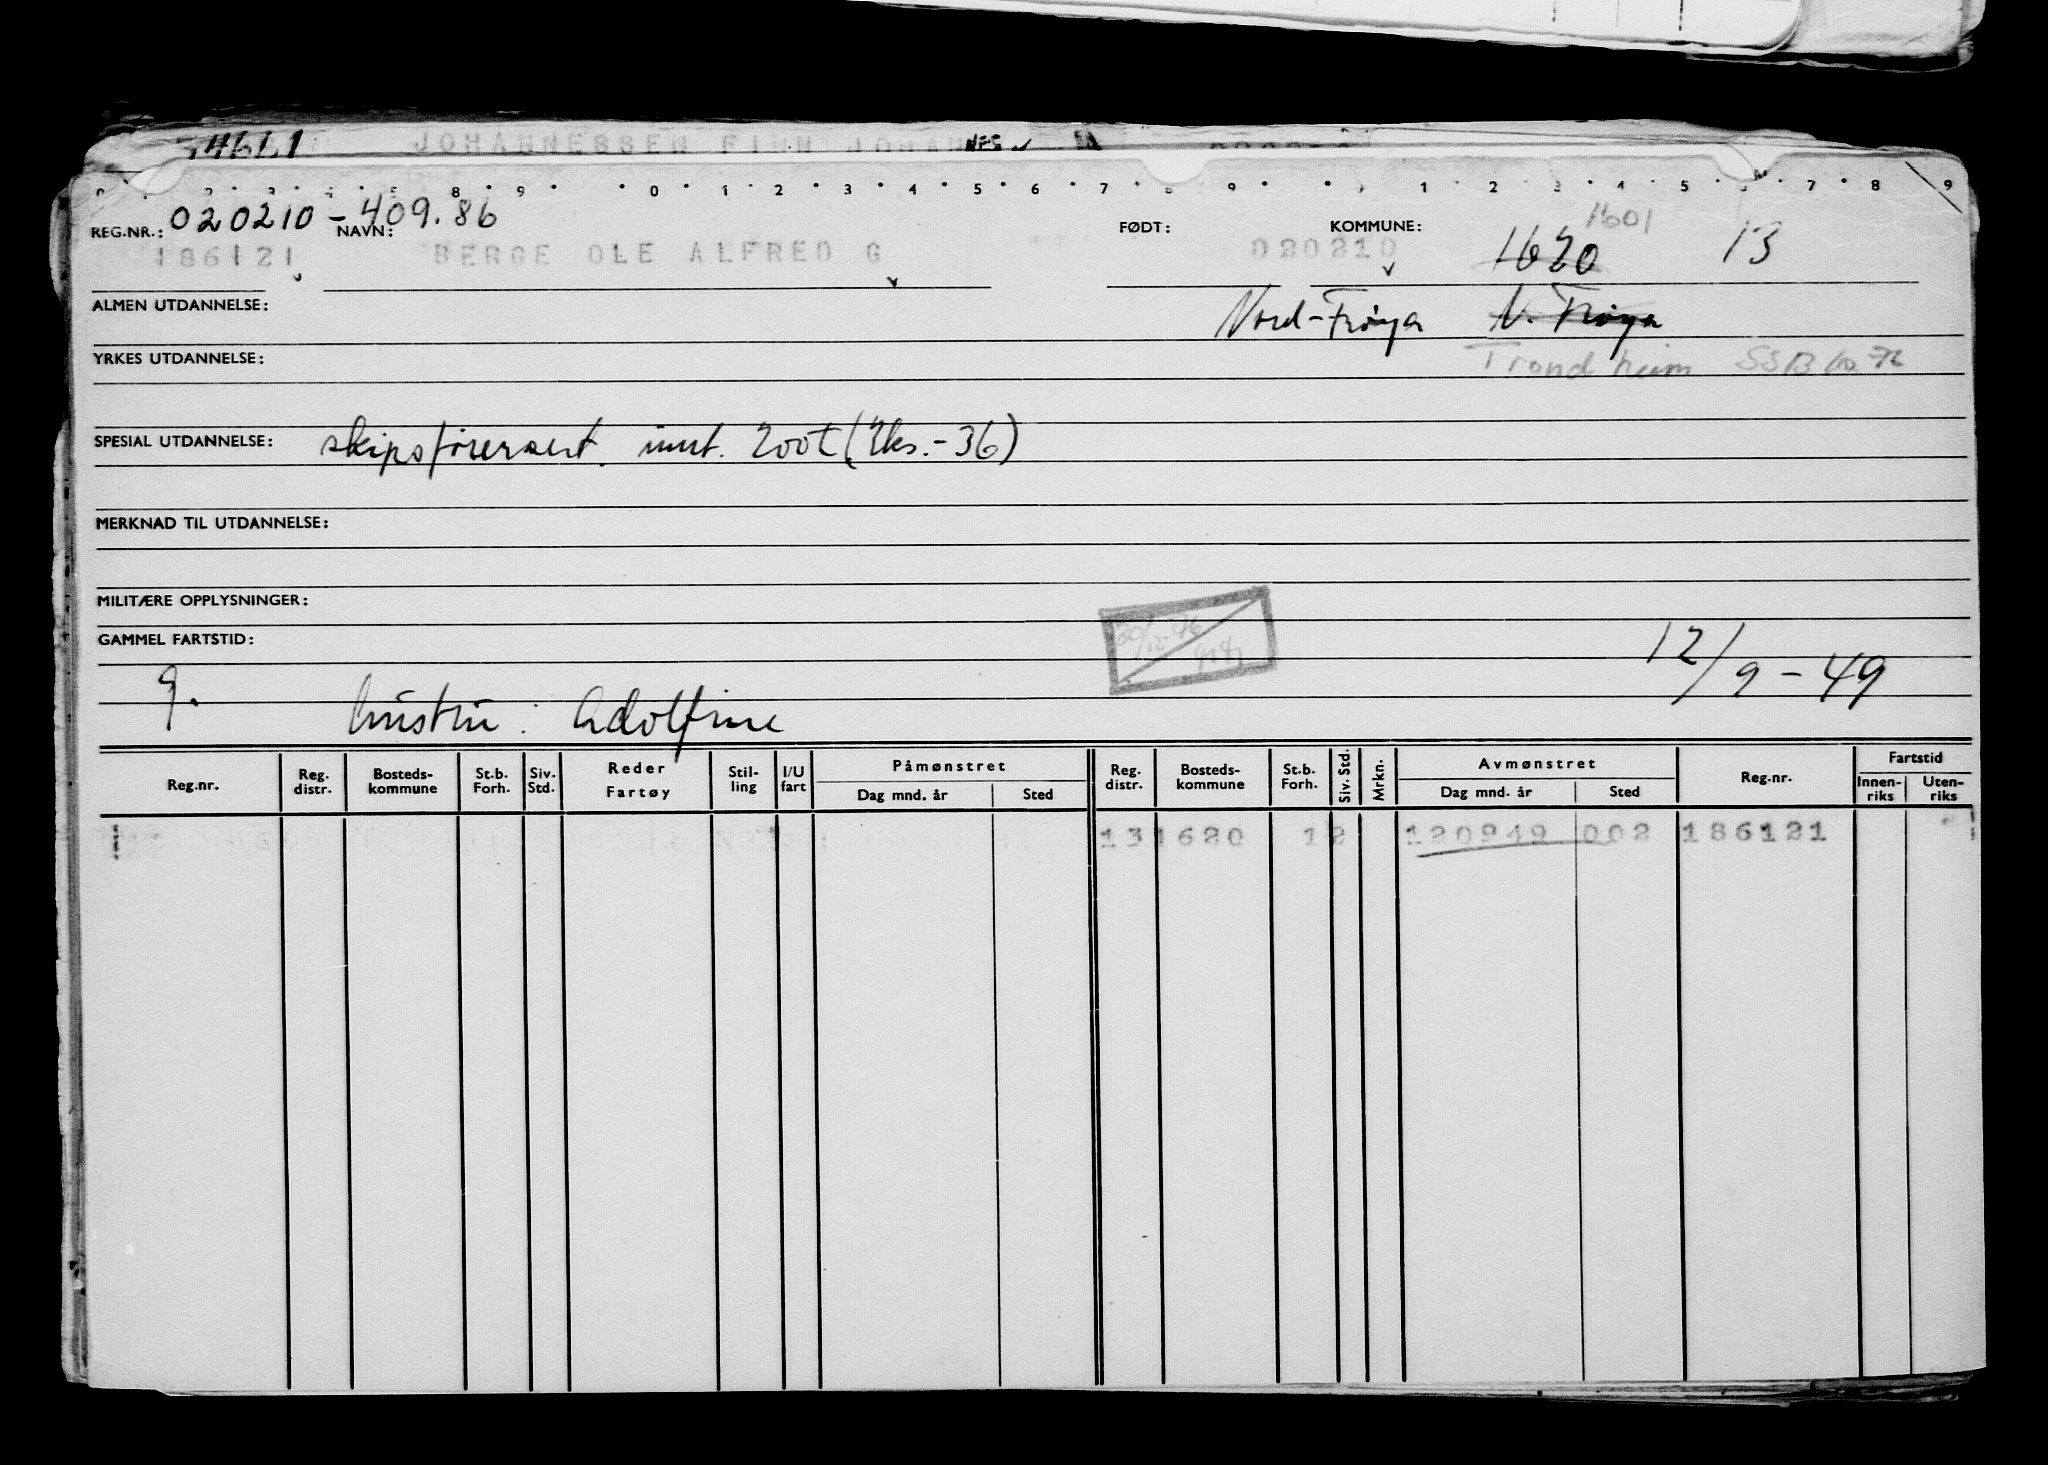 4661 JOHANNESSEN FINN JOHANNES
0 2 3 4 5 8 9 0 1 2 3 4 5 6 7 8 9 1 2 3 4 5 6 7 8 9
020210 - 409.86 1601
REG.NR.: NAVN: FØDT: KOMMUNE: 1620 13
186121 BERGE OLE ALFRED G 020210
ALMEN UTDANNELSE: Nord-Frøya N. Frøya
YRKES UTDANNELSE: Trondheim SSB
SPESIAL UTDANNELSE: skipsførersert. innt. 200t (Eks.-36)
MERKNAD TIL UTDANNELSE:
MILITÆRE OPPLYSNINGER:
GAMMEL FARTSTID: 12/9-49
g. hustru: Adolfine
Reg.nr. Reg. distr. Bosteds-kommune St.b. Forh. Siv. Std. Reder Fartøy Stil-ling I/U fart Påmønstret Dag mnd. år Sted Reg. distr. Bosteds-kommune St.b. Forh. Siv. Std. Mrkn. Avmønstret Dag mnd. år Sted Reg.nr. Fartstid Innen-riks Uten-riks
13 1620 12 120949 002 186121